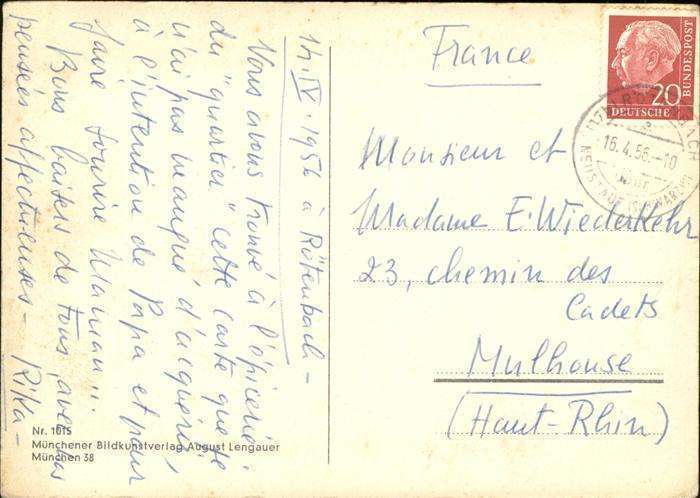 14.IV.1956 à Rötenbach -
Nous avons trouvé à l'épicerie
du "quartier" cette carte que je
n'ai pas manqué d'acquérir,
à l'intention de Papa et pour
faire sourire Maman!!
Bons baisers de tous, avec nos
pensées affectueuses - Rika -
Nr. 1015
Münchener Bildkunstverlag August Lengauer
München 38
France
20
BUNDESPOST
DEUTSCHE
16.4.56.-10
NEUSTADT (SCHWARZW)
Monsieur et
Madame E. Wiederkehr
23, chemin des
Cadets
Mulhouse
(Haut-Rhin)